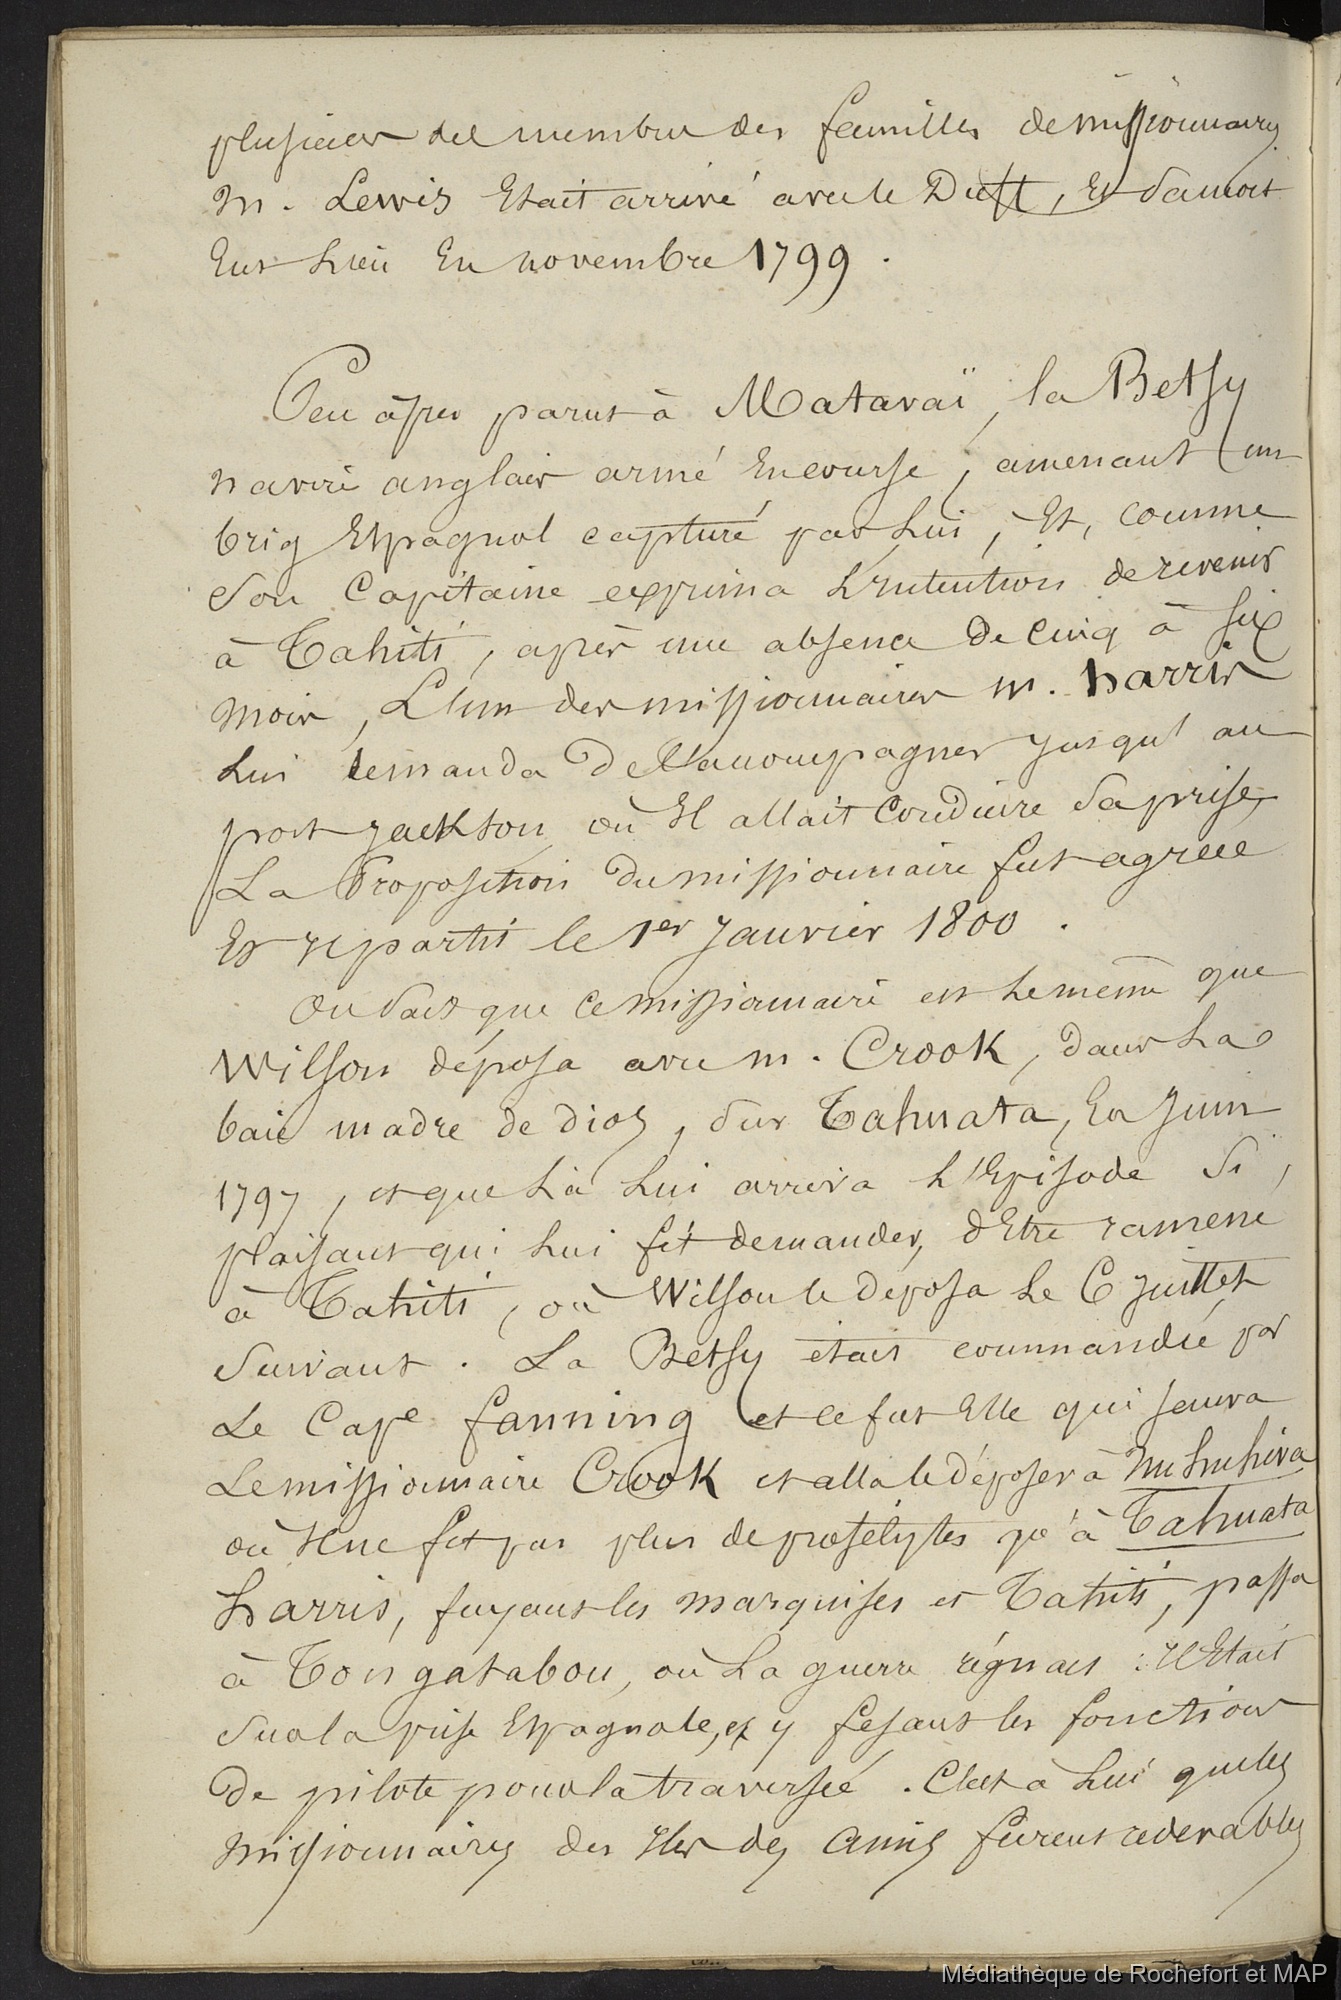 plusieurs des membres des familles de missionnaires.
M. Lewis était arrivé avec le Duff, et sa mort
eut lieu en novembre 1799.
Peu après parut à Matavaï, la Betsy
navire anglais armé en course, amenant un
brig Espagnol capturé par lui, et, comme
son Capitaine exprima l'intention de revenir
à Tahiti, après une absence de cinq à six
mois, l'un des missionnaires m. harris
lui demanda de l'accompagner jusqu'au
port jackson où il allait conduire sa prise,
La Proposition du missionnaire fut agréée
Et repartit le 1er Janvier 1800.
On sait que ce missionnaire est le même que
Wilson déposa avec m. Crook, dans la
baie madre de dios, sur Tahuata, en Juin
1797, et que là lui arriva l'Episode si
plaisant qui lui fit demander, d'être ramené
à Tahiti, où Wilson le déposa le 6 juillet
suivant. La Betsy était commandée par
Le Cape fanning et ce fut elle qui sauva
Le missionnaire Crook et alla le déposer à Nuhuhiva
où il ne fit pas plus de prosélytes qu'à Tahuata
harris, fuyant les marquises et Tahiti, passa
à Tongatabou, où la guerre régnait : il était
sur la prise Espagnole, et y fesant les fonctions
de pilote pour la traversée. C'est à lui que les
missionnaires des Iles des Amis furent redevables
Médiathèque de Rochefort et MAP